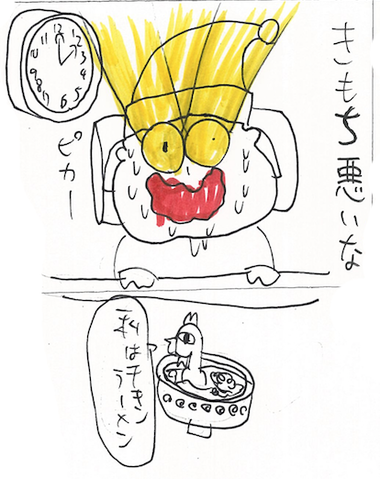 きもち悪いな
12
1
2
3
4
5
6
7
8
9
10
11
ピカー
私はチキン
ラーメン